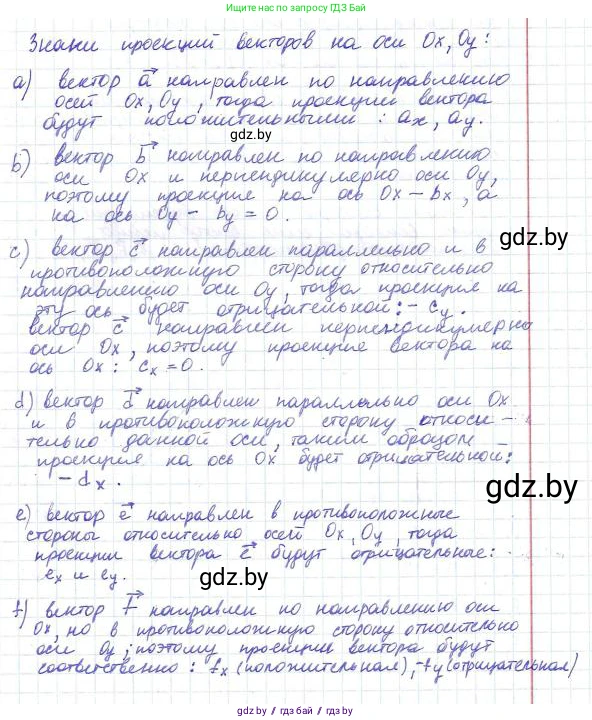 Нашли по запросу ГДЗ Бай
Знаки проекций векторов на оси Ox, Oy:
a) вектор a направлен по направлению
осей Ox, Oy, тогда проекции вектора
будут положительными: ax, ay.
gdz.by
b) вектор b направлен по направлению
оси Ox и перпендикулярно оси Oy,
поэтому проекция на ось Ox - bx, а
на ось Oy - by = 0.
gdz.by
c) вектор c направлен параллельно и в
противоположную сторону относительно
направлению оси Oy, тогда проекция на
эту ось будет отрицательной: - cy.
вектор c направлен перпендикулярно
оси Ox, поэтому проекция вектора на
ось Ox: cx = 0.
gdz.by
d) вектор d направлен параллельно оси Ox
и в противоположную сторону относи-
тельно данной оси, таким образом -
проекция на ось Ox будет отрицательной:
- dx.
gdz.by
e) вектор e направлен в противоположные
стороны относительно осей Ox, Oy, тогда
проекции вектора e будут отрицательные:
ex и ey.
gdz.by
f) вектор f направлен по направлению оси
Ox, но в противоположную сторону относительно
оси Oy, поэтому проекции вектора будут
соответственно: fx (положительная), -fy (отрицательная)
gdz.by / гдз бай / gdz.by